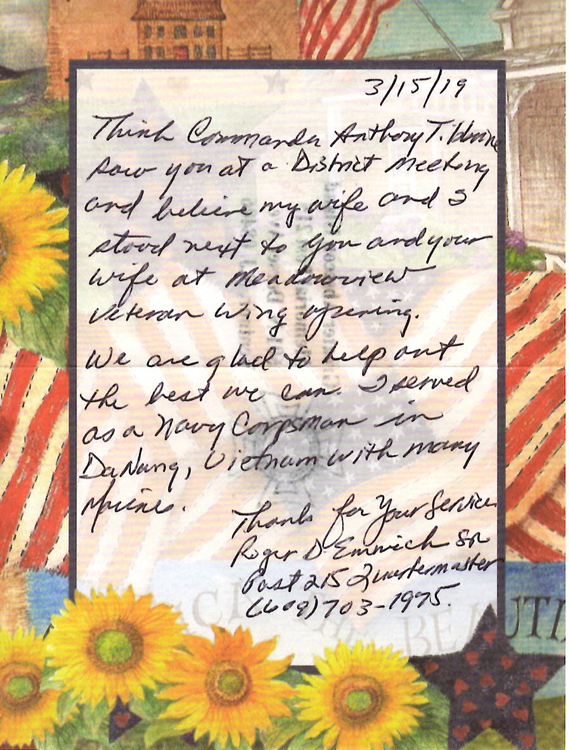 3/15/19
Think Commander Anthony T.
saw you at a District Meeting
and believe my wife and I
stood next to you and your
wife at Meadowview
Veteran Wing opening.
We are glad to help out
the best we can. I served
as a Navy Corpsman in
DaNang, Vietnam with many
Marines.
Thanks for Your Service
Roger D Emmrich Sr
Post 215 Quartermaster
(608) 703-1975.
BEAUTI